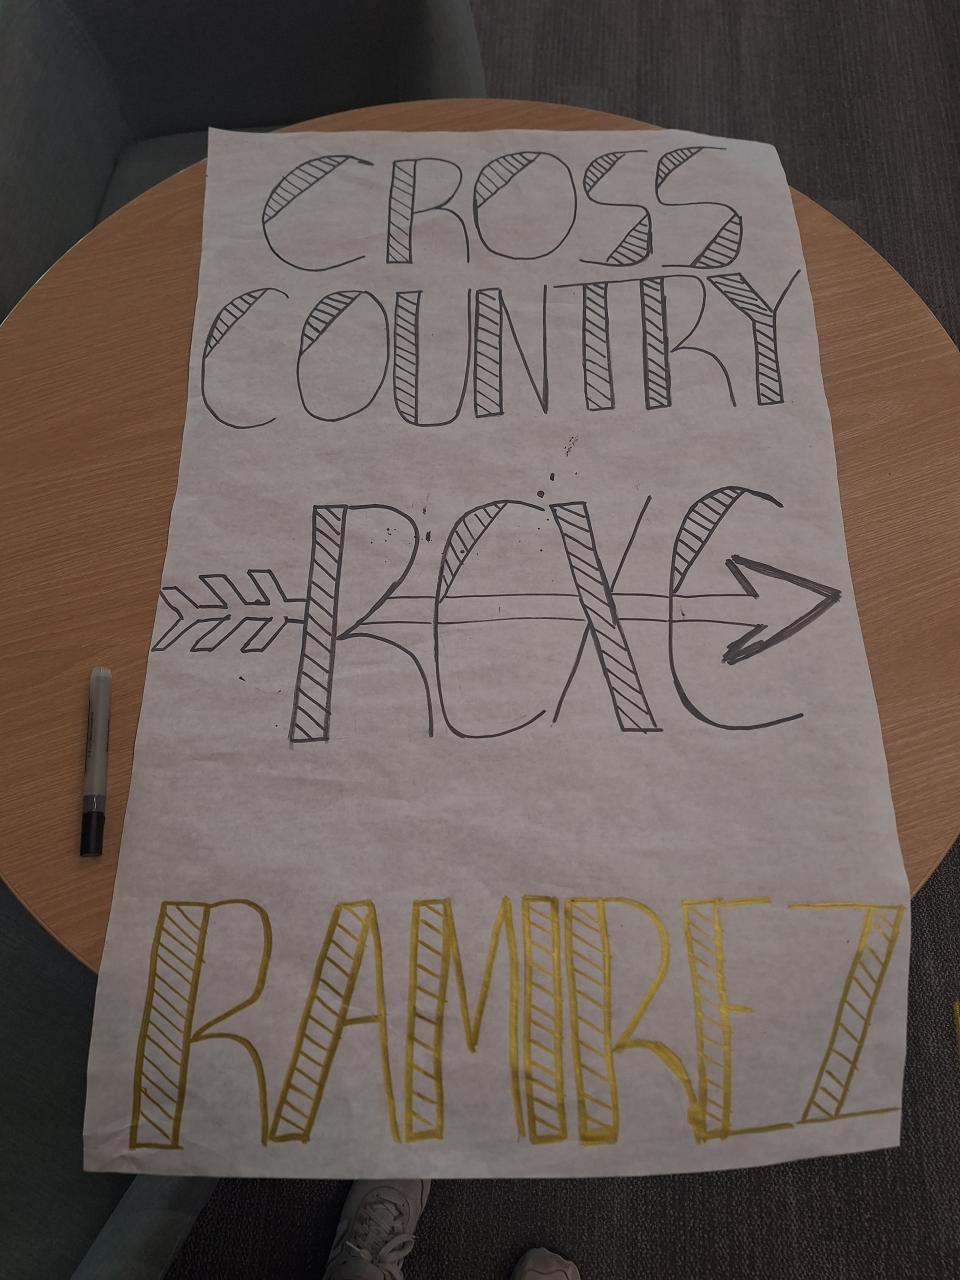 CROSS
COUNTRY
RCXC
RAMIREZ